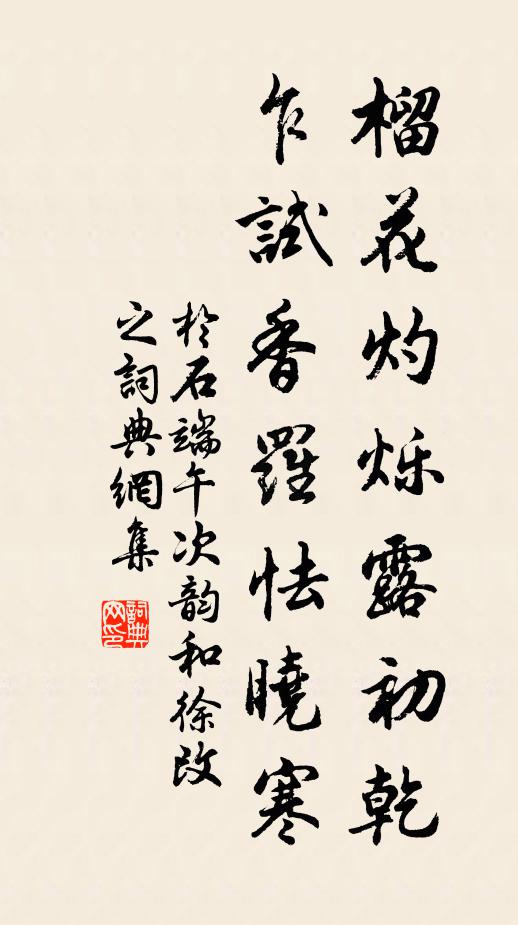 榴花灼烁露初乾
乍試香羅怯曉寒
於石端午次韵和徐改
之詞典網集
詞典网印